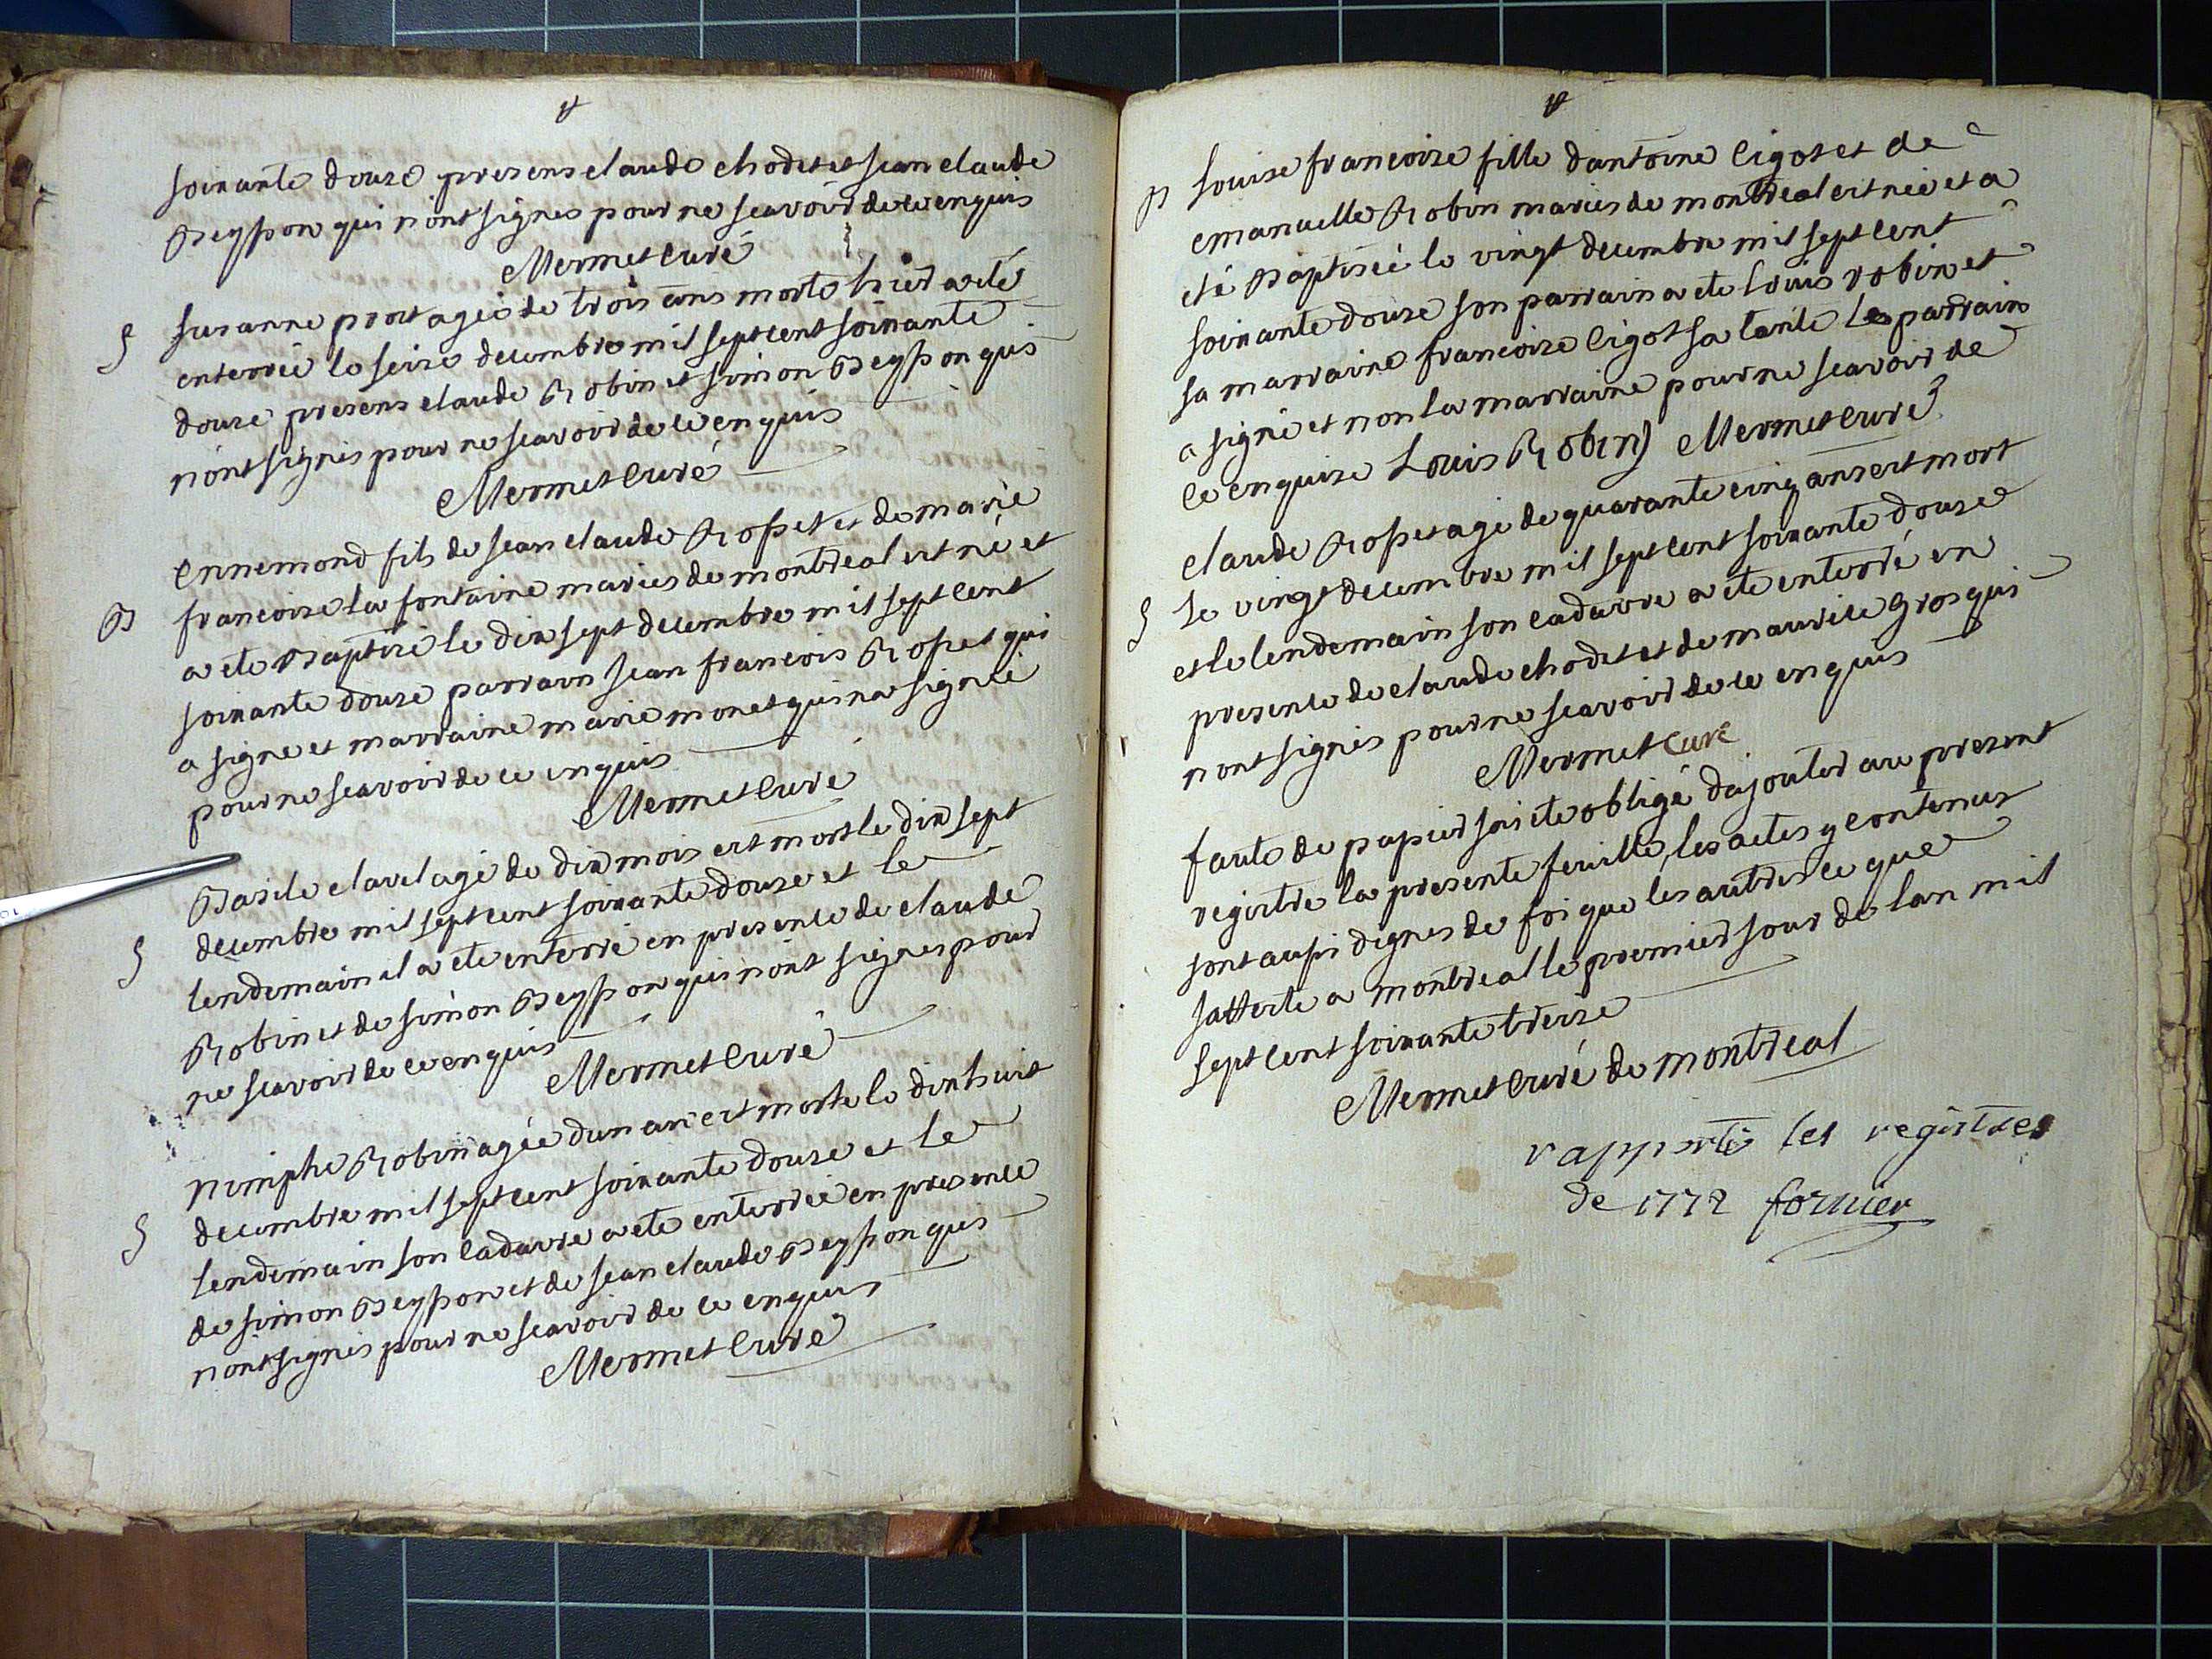 soixante douze presens claude chodet et jean claude
Beysson qui n'ont signes pour ne scavoir de ce enquis
Mermet curé
S susanne prost agée de trois ans morte hier a eté
enterrée le seize decembre mil sept cent soixante
douze presens claude Robin et simon Beysson qui
n'ont signés pour ne scavoir de ce enquis
Mermet curé
ennemond fils de jean claude Rosset et de marie
B francoise la fontaine mariés de montreal est né et
a ete Baptisé le dix sept decembre mil sept cent
soixante douze parrain jean francois Rosset qui
a signe et marraine marie monet qui n'a signée
pour ne scavoir de ce enquis
Mermet curé
Basile clavel agé de dix mois est mort le dix sept
S decembre mil sept cent soixante douze et le
lendemain il a ete enterré en presence de claude
Robin et de simon Beysson qui n'ont signes pour
ne scavoir de ce enquis
Mermet curé
nimphe Robin agée dun an est morte le dix huit
S decembre mil sept cent soixante douze et le
lendemain son cadavre a ete enterrée en presence
de simon Beysson et de jean claude Beysson qui
n'ont signés pour ne scavoir de ce enquis
Mermet curé
B louise francoise fille dantoine ligot et de
emanuelle Robin mariés de montreal est née et a
eté Baptisée le vingt decembre mil sept cent
soixante douze son parrain a ete louis robin et
sa marraine francoise ligot sa tante le parrain
a signé et non la marraine pour ne scavoir de
ce enquise Louis Robin Mermet curé
claude Rosset agé de quarante cinq ans est mort
S le vingt decembre mil sept cent soixante douze
et le lendemain son cadavre a ete enterré en
presence de claude chodet et de maurice gros qui
n'ont signés pour ne scavoir de ce enquis
Mermet curé
faute de papier jai ete obligé dajouter au present
registre la presente feuille, les actes y contenus
sont aussi dignes de foi que les autres ce que
jatteste a montreal le premier jour de lan mil
sept cent soixante treize
Mermet curé de montreal
rapporté les registres
de 1772 fornier